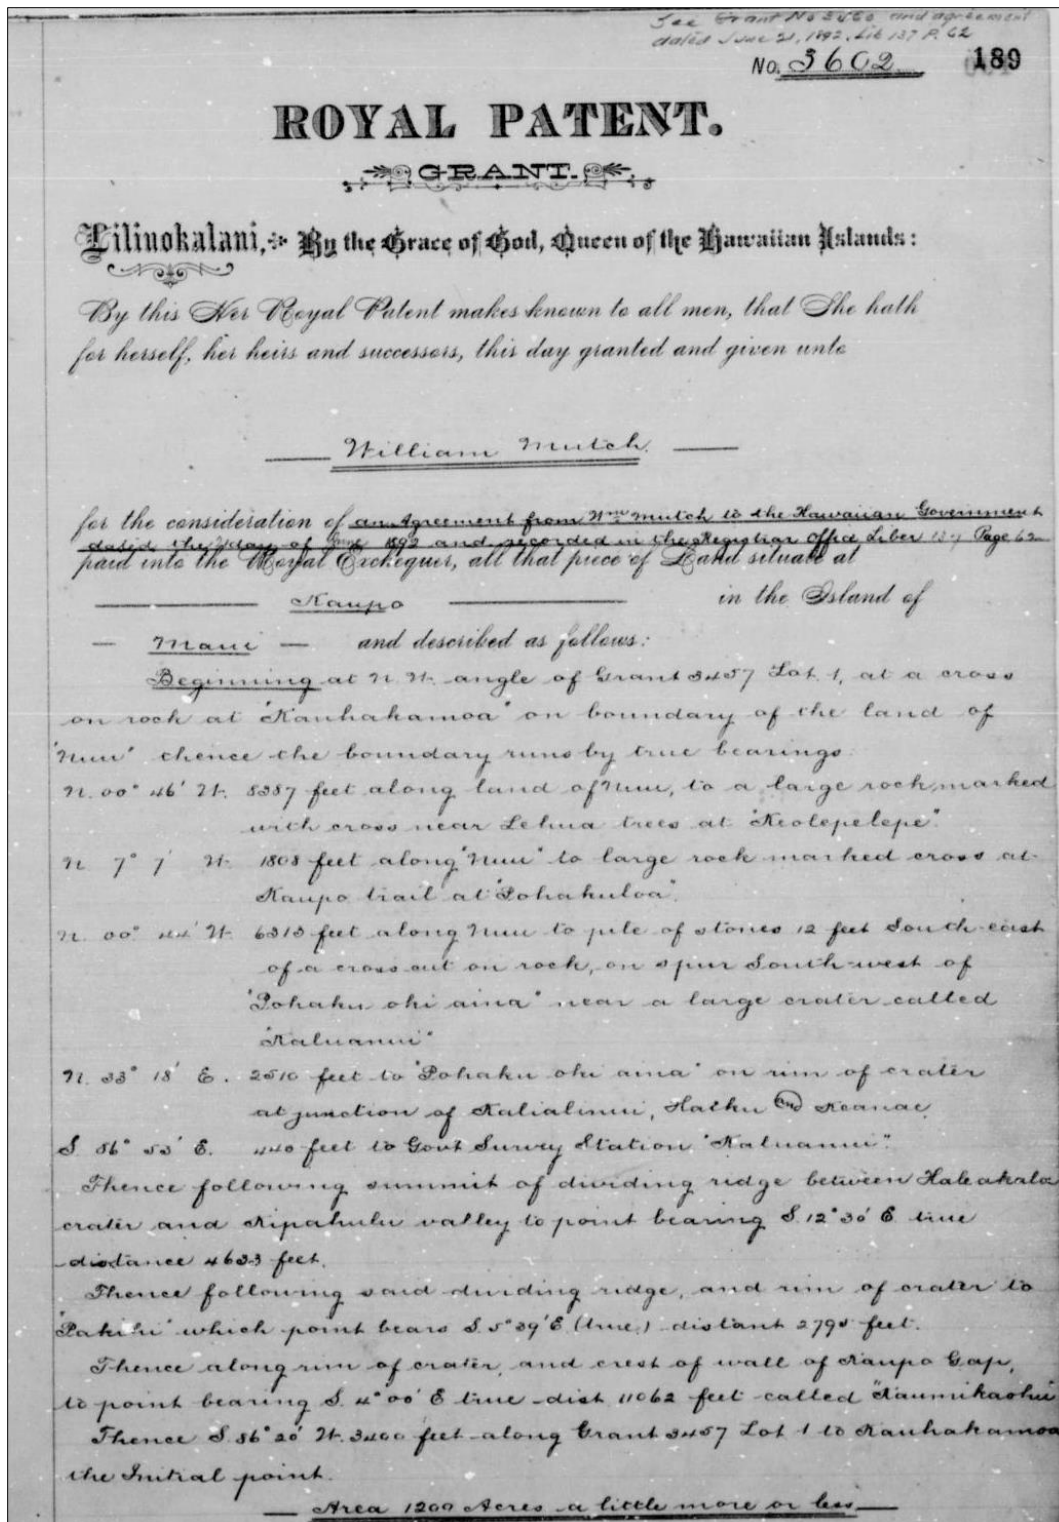 See Grant No 3450 and agreement
dated June 21, 1892, Lib 137 P. 62
No. 3602 189
ROYAL PATENT.
GRANT.
Liliuokalani, By the Grace of God, Queen of the Hawaiian Islands:
By this Her Royal Patent makes known to all men, that She hath
for herself, her heirs and successors, this day granted and given unto
William Mutch.
for the consideration of an Agreement from Wm Mutch to the Hawaiian Government
dated the day of June 1892 and recorded in the Registrar Office Liber 137 Page 62
paid into the Royal Exchequer, all that piece of Land situate at
Kaupo in the Island of
Maui and described as follows:
Beginning at N.W. angle of Grant 3457 Lot 1, at a cross
on rock at "Kauhakamoa" on boundary of the land of
"Nuu" thence the boundary runs by true bearings.
N. 00° 46' W. 8387 feet along land of Nuu, to a large rock, marked
with cross near Lehua trees at "Keolepelepe".
N 7° 7' W. 1808 feet along "Nuu" to large rock marked cross at
Kaupo trail at "Pohakuloa".
N. 00° 44' W. 6313 feet along Nuu to pile of stones 12 feet South-east
of a cross cut on rock, on spur South-west of
"Pohaku oki aina" near a large crater called
"Kaluanui"
N. 33° 18' E. 2510 feet to "Pohaku oki aina" on rim of crater
at junction of Kalialinui, Haiku and Keanae.
S 86° 53' E. 440 feet to Govt Survey Station "Kaluanui".
Thence following summit of dividing ridge between Haleakala
crater and Kipahulu valley to point bearing S. 12° 30' E true
distance 4633 feet.
Thence following said dividing ridge, and rim of crater to
"Pakihi" which point bears S. 5° 39' E (true.) distant 2795 feet.
Thence along rim of crater, and crest of wall of Kaupo Gap,
to point bearing S. 4° 00' E true dist. 11062 feet called "Kaumikaohu"
Thence S 86° 20' W. 3400 feet along Grant 3457 Lot 1 to Kauhakamoa
the Initial point.
Area 1200 Acres a little more or less